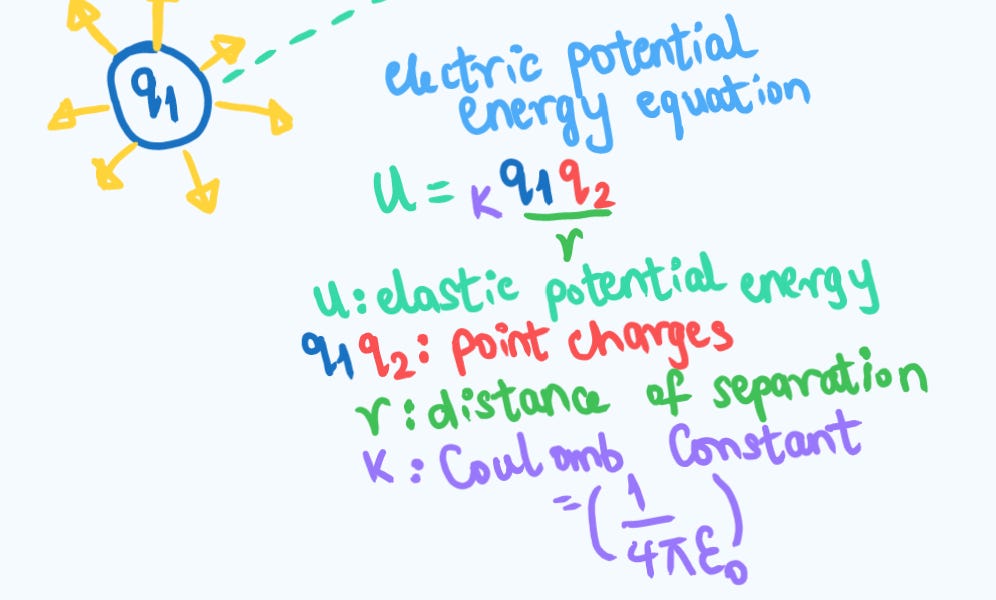 q₁
electric potential
energy equation
U = K q₁q₂
r
U: elastic potential energy
q₁ q₂: point charges
r: distance of separation
K: Coulomb Constant
= (1
4πε₀)